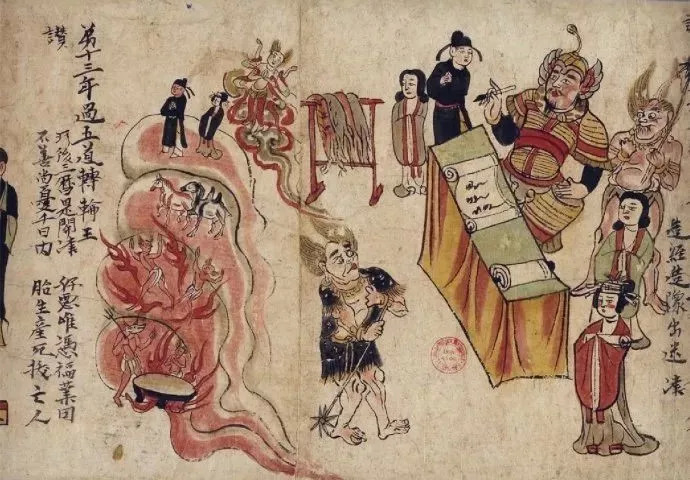 造經造像出迷津
第十三年過五道轉輪王
讚
後三曆是關津
好惡唯憑福業因
不善尚憂千日內
胎生產死拔亡人